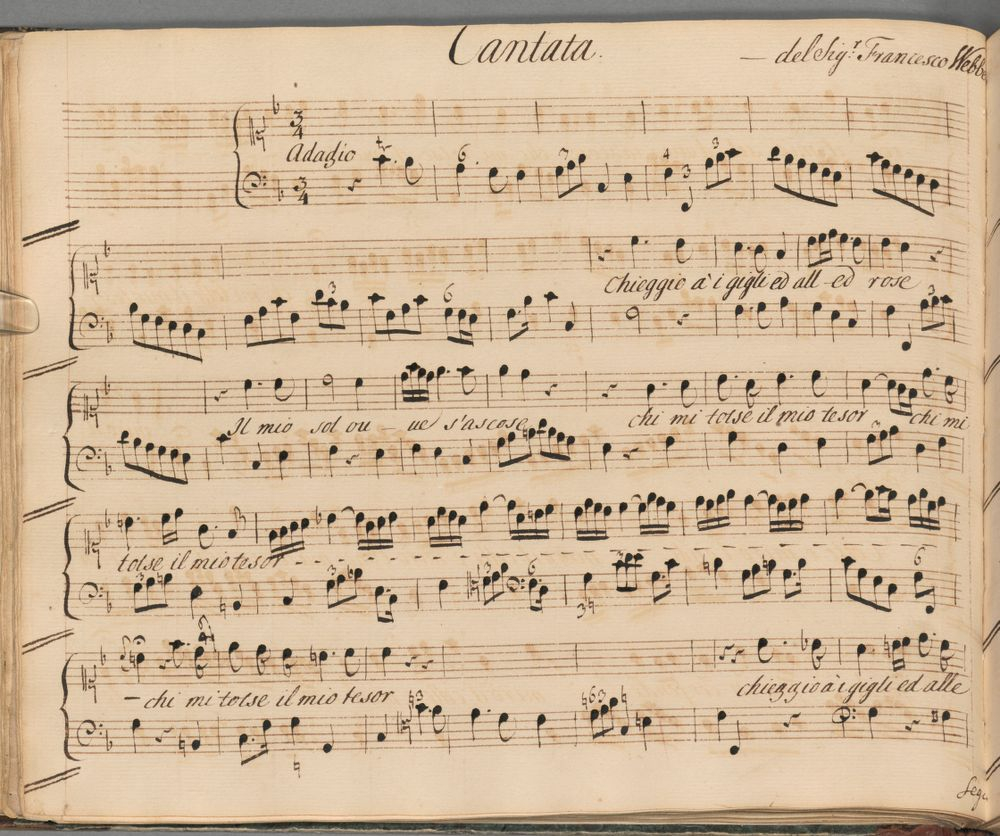 Cantata.
del Sigr. Francesco Webbe
Adagio
Chieggio à i gigli ed all-ed rose
Il mio sol ou - ue s'ascose chi mi tolse il mio tesor chi mi
tolse il mio tesor
- chi mi tolse il mio tesor chieggio à i gigli ed alle